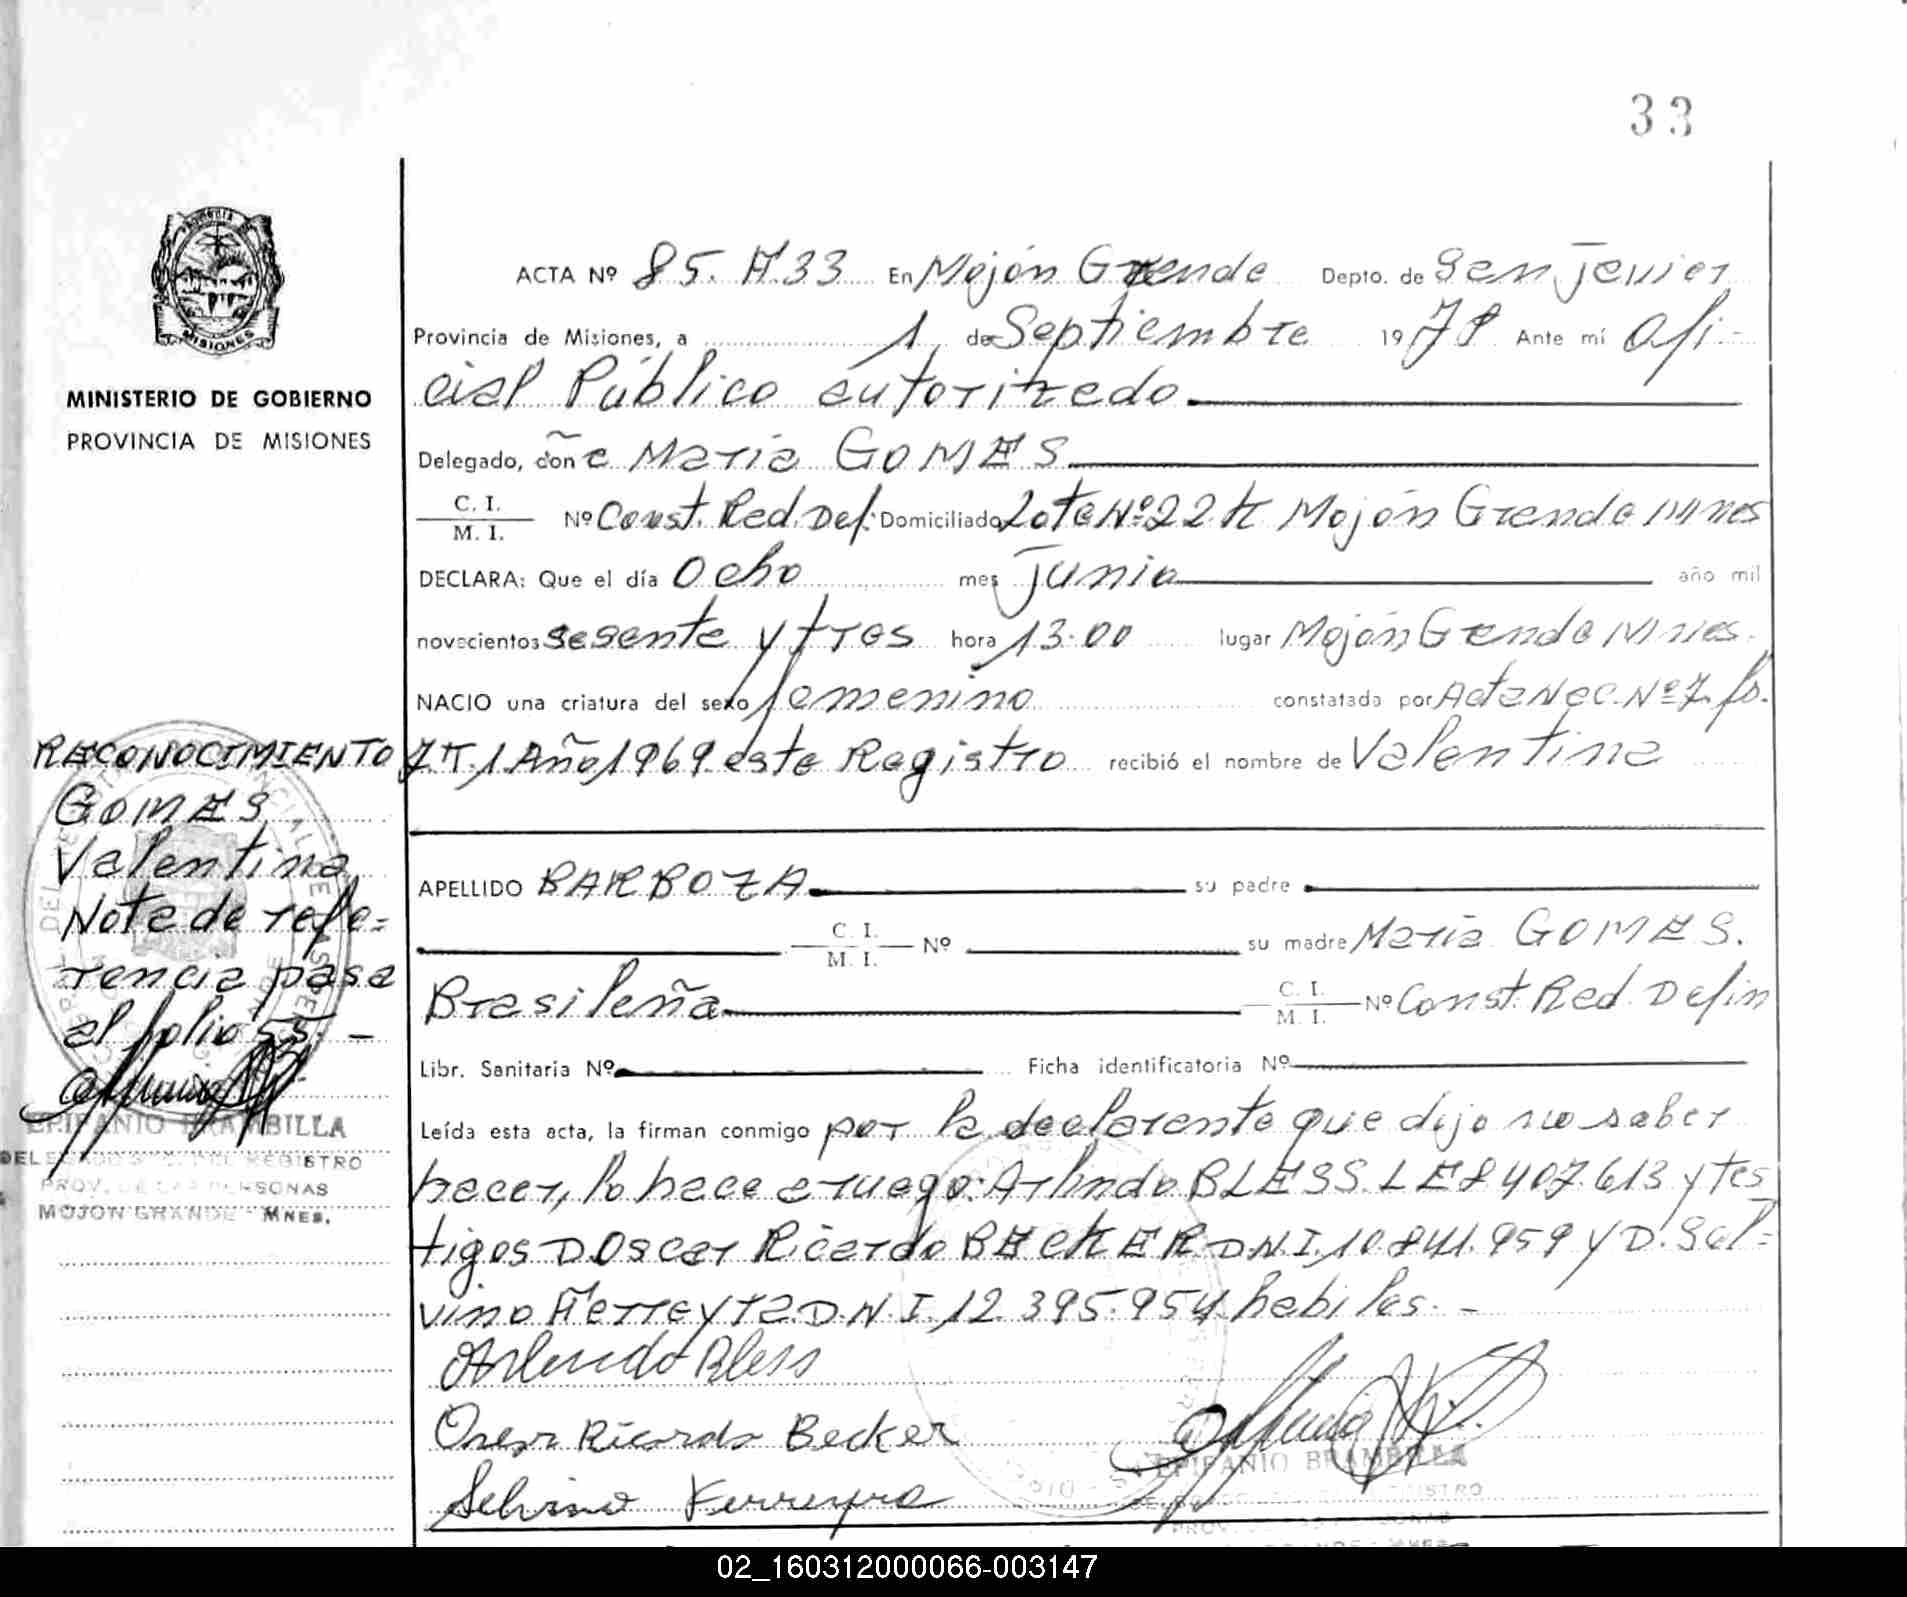 33
ACTA Nº 85. F.33 En Mojón Grande Depto. de San Javier
Provincia de Misiones, a 1 de Septiembre 1978 Ante mí Ofi-
cial Público autorizado
Delegado, doña María GOMES
C. I.
M. I. Nº Const. Red. Def. Domiciliado Lote Nº 22 K Mojón Grande Mnes
DECLARA: Que el día Ocho mes Junio año mil
novecientos sesenta y tres hora 13.00 lugar Mojón Grande Mnes.
NACIO una criatura del sexo femenino constatada por Acta Nac. Nº 7. fo.
7 T. 1 Año 1969 este Registro recibió el nombre de Valentina
APELLIDO BARBOZA su padre
C. I.
M. I. Nº su madre María GOMES.
Brasileña C. I.
M. I. Nº Const. Red. Defin
Libr. Sanitaria Nº Ficha identificatoria Nº
Leída esta acta, la firman conmigo por la declarante que dijo no saber
hacer, lo hace a ruego: Arlindo BLESS. LE 8407.613 y tes
tigos D. Oscar Ricardo BECKER D.N.I. 10.841.959 y D. Sel-
vino Ferreyra D.N.I. 12.395.954 habiles. -
Arlindo Bless
Oscar Ricardo Becker
Selvino Ferreyra
EPIFANIO BRAMBILLA
MISIONES
MINISTERIO DE GOBIERNO
PROVINCIA DE MISIONES
RECONOCIMIENTO
GOMES
Valentina
Nota de refe-
rencia pasa
al folio 55. -
EPIFANIO BRAMBILLA
DELEGADO REGISTRO
PROV. DE LAS PERSONAS
MOJON GRANDE - MNES.
02_160312000066-003147